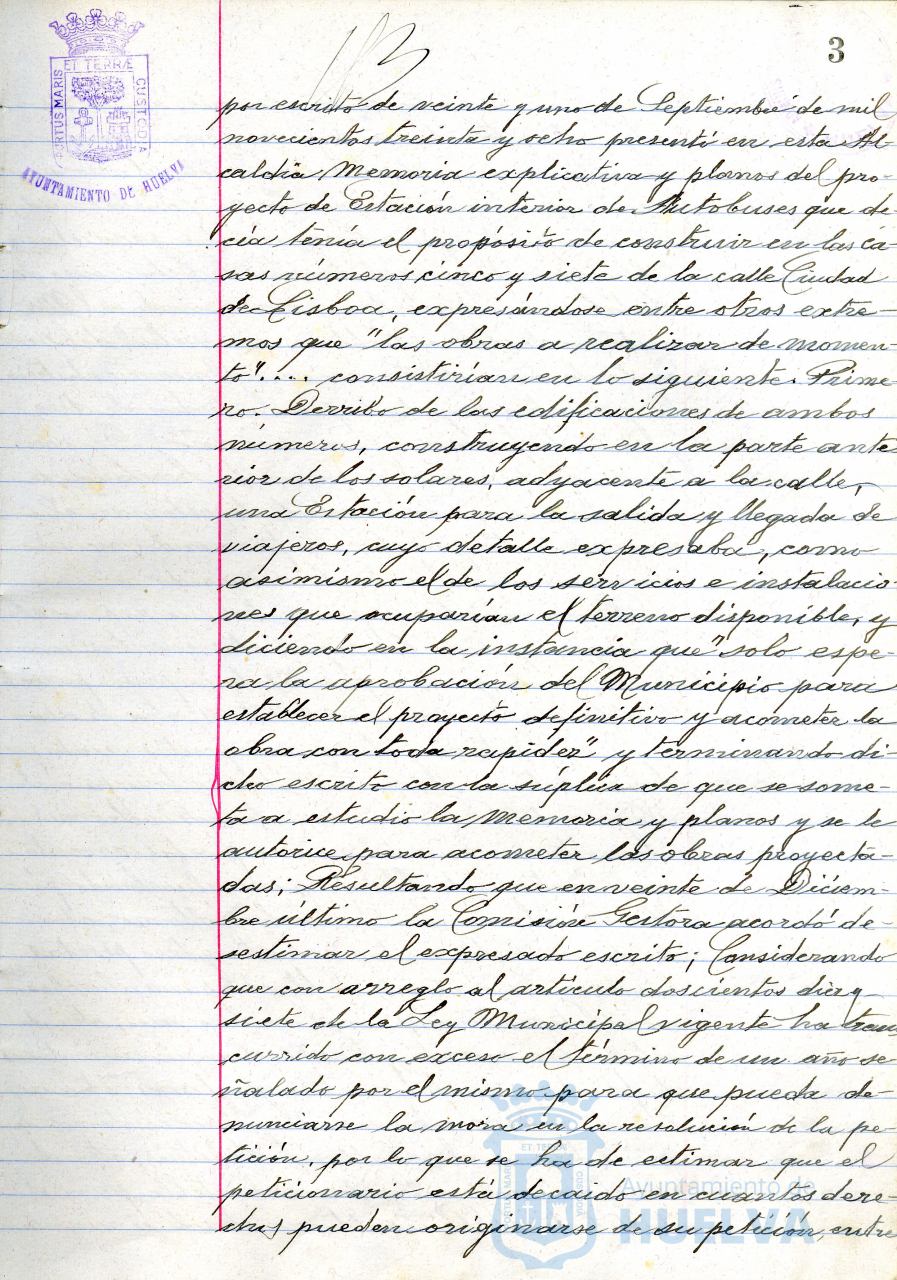 3
PORTUS MARIS
ET TERRÆ
CUSTODIA
AYUNTAMIENTO DE HUELVA
por escrito de veinte y uno de Septiembre de mil
novecientos treinta y ocho presentó en esta Al-
caldía Memoria explicativa y planos del pro-
yecto de Estación interior de Autobuses que de-
cía tenía el propósito de construir en las ca-
sas números cinco y siete de la calle Ciudad
de Lisboa, expresándose entre otros extre-
mos que "las obras a realizar de momen-
to".... consistirían en lo siguiente. Prime-
ro. Derribo de las edificaciones de ambos
números, construyendo en la parte ante
rior de los solares, adyacente a la calle,
una Estación para la salida y llegada de
viajeros, cuyo detalle expresaba, como
asimismo el de los servicios e instalacio-
nes que ocuparían el terreno disponible, y
diciendo en la instancia que "solo espe-
ra la aprobación del Municipio para
establecer el proyecto definitivo y acometer la
obra con toda rapidez" y terminando di-
cho escrito con la súplica de que se some-
ta a estudio la Memoria y planos y se le
autorice para acometer las obras proyecta-
das; Resultando que en veinte de Diciem-
bre último la Comisión Gestora acordó de-
sestimar el expresado escrito; Considerando
que con arreglo al artículo doscientos diez y
siete de la Ley Municipal vigente ha trans
currido con exceso el término de un año se-
ñalado por el mismo para que pueda de-
nunciarse la mora en la resolución de la pe-
tición, por lo que se ha de estimar que el
peticionario está decaído en cuantos dere-
chos pueden originarse de su petición, entre
ET TERRÆ
Ayuntamiento de
HUELVA